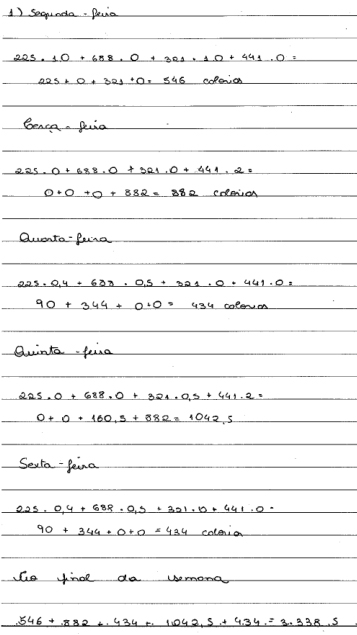 1) Segunda-feira
225 . 1,0 + 688 . 0 + 321 . 1,0 + 441 . 0 =
225 + 0 + 321 + 0 = 546 calorias
Terça-feira
225 . 0 + 688 . 0 + 321 . 0 + 441 . 2 =
0 + 0 + 0 + 882 = 882 calorias
Quarta-feira
225 . 0,4 + 688 . 0,5 + 321 . 0 + 441 . 0 =
90 + 344 + 0 + 0 = 434 calorias
Quinta-feira
225 . 0 + 688 . 0 + 321 . 0,5 + 441 . 2 =
0 + 0 + 160,5 + 882 = 1042,5
Sexta-feira
225 . 0,4 + 688 . 0,5 + 321 . 0 + 441 . 0 =
90 + 344 + 0 + 0 = 434 caloria
No final da semana
546 + 882 + 434 + 1042,5 + 434 = 3.338,5